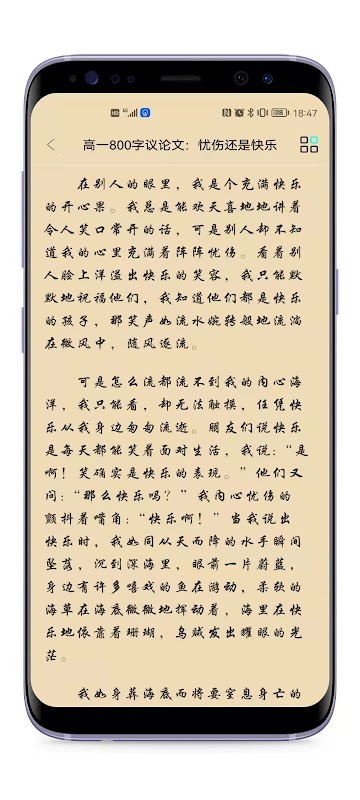 18:47
高一800字议论文：忧伤还是快乐
在别人的眼里，我是个充满快乐
的开心果。我总是能欢天喜地地讲着
令人笑口常开的话，可是别人却不知
道我的心里充满着阵阵忧伤。看着别
人脸上洋溢出快乐的笑容，我只能默
默地祝福他们，我知道他们都是快乐
的孩子，那笑声如流水婉转般地流淌
在微风中，随风逐流。
可是怎么流都流不到我的内心海
洋，我只能看，却无法触摸，任凭快
乐从我身边匆匆流逝。朋友们说快乐
是每天都能笑着面对生活，我说：“是
啊！笑确实是快乐的表现。”他们又
问：“那么快乐吗？”我内心忧伤的
颤抖着嘴角：“快乐啊！”当我说出
快乐时，我如同从天而降的水手瞬间
坠落，沉到深海里，眼前一片蔚蓝，
身边有许多嘻戏的鱼在游动，柔软的
海草在海底微微地挥动着，海里在快
乐地依靠着珊瑚，乌贼发出耀眼的光
茫。
我如身葬海底而将要窒息身亡的